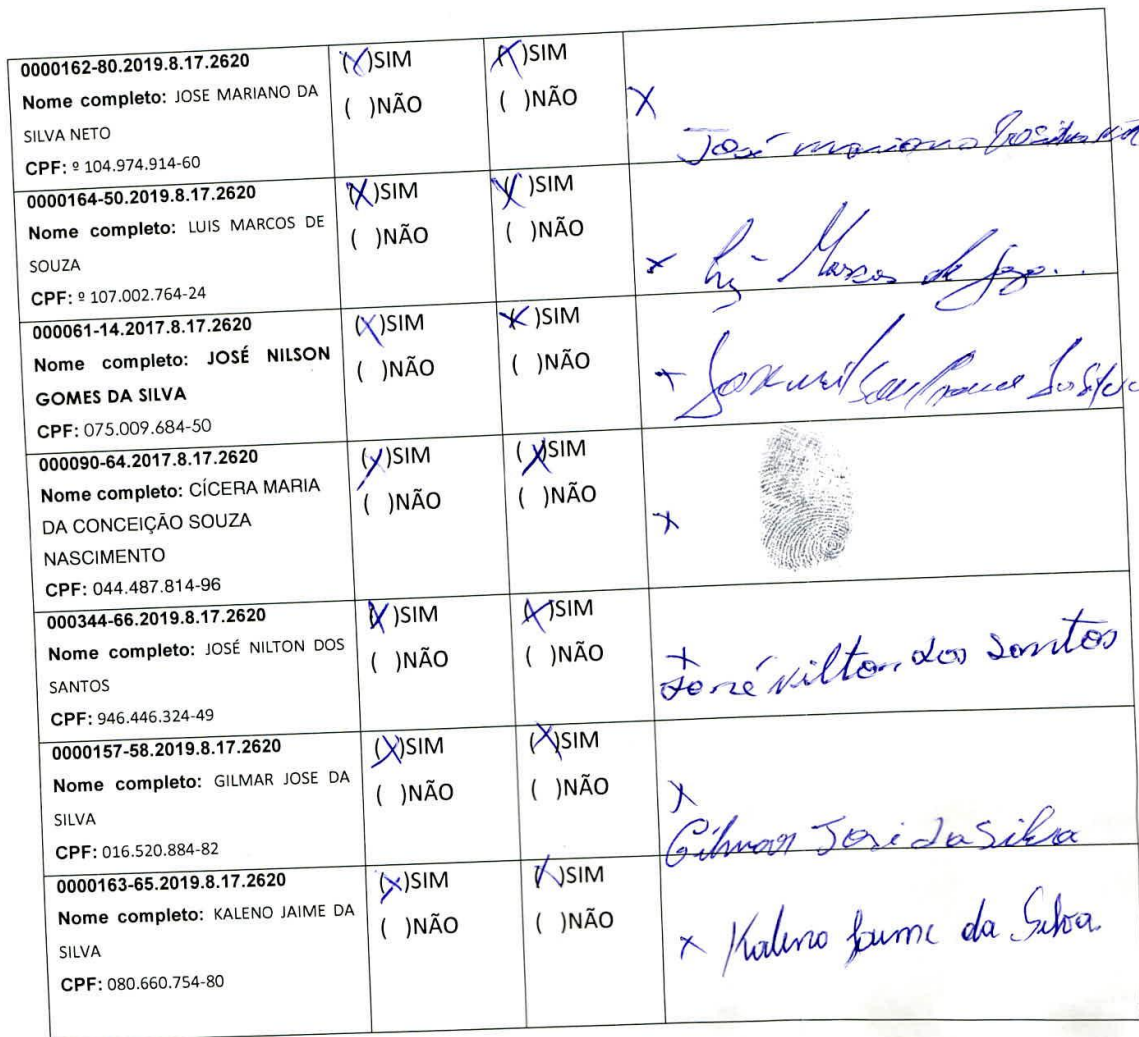 0000162-80.2019.8.17.2620
Nome completo: JOSE MARIANO DA
SILVA NETO
CPF: º 104.974.914-60
(X)SIM
( )NÃO
(X)SIM
( )NÃO
X
José mariano
0000164-50.2019.8.17.2620
Nome completo: LUIS MARCOS DE
SOUZA
CPF: º 107.002.764-24
(X)SIM
( )NÃO
(X)SIM
( )NÃO
x Marcos de
000061-14.2017.8.17.2620
Nome completo: JOSÉ NILSON
GOMES DA SILVA
CPF: 075.009.684-50
(X)SIM
( )NÃO
(X)SIM
( )NÃO
x
000090-64.2017.8.17.2620
Nome completo: CÍCERA MARIA
DA CONCEIÇÃO SOUZA
NASCIMENTO
CPF: 044.487.814-96
(X)SIM
( )NÃO
(X)SIM
( )NÃO
x
000344-66.2019.8.17.2620
Nome completo: JOSÉ NILTON DOS
SANTOS
CPF: 946.446.324-49
(X)SIM
( )NÃO
(X)SIM
( )NÃO
x
José Nilton dos Santos
0000157-58.2019.8.17.2620
Nome completo: GILMAR JOSE DA
SILVA
CPF: 016.520.884-82
(X)SIM
( )NÃO
(X)SIM
( )NÃO
x
Gilmar José da Silva
0000163-65.2019.8.17.2620
Nome completo: KALENO JAIME DA
SILVA
CPF: 080.660.754-80
(X)SIM
( )NÃO
(X)SIM
( )NÃO
x Kaleno Jaime da Silva